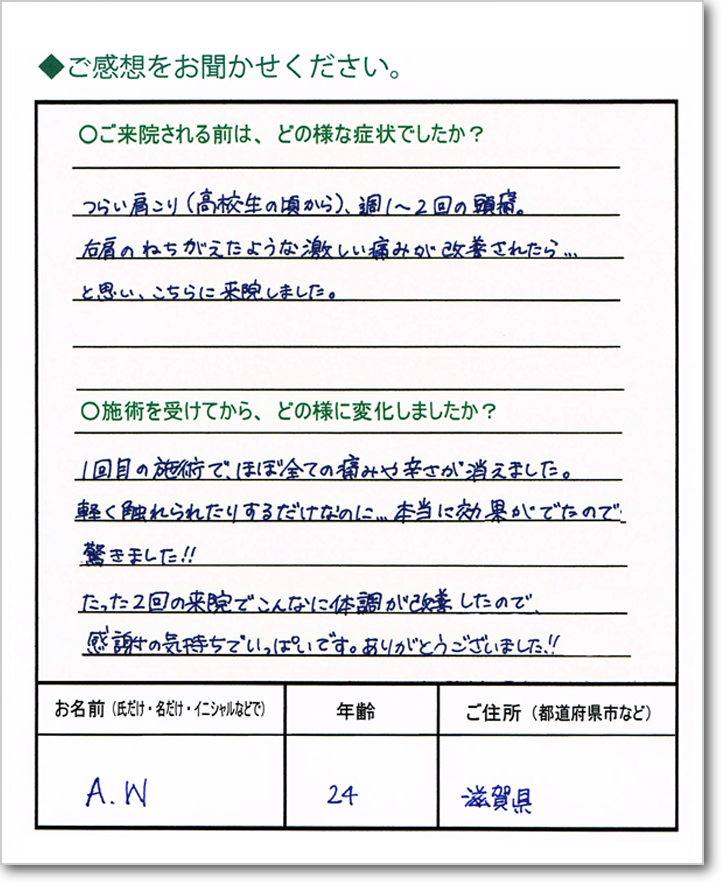 ◆ご感想をお聞かせください。
〇ご来院される前は、どの様な症状でしたか？
つらい肩こり(高校生の頃から)、週1〜2回の頭痛。
右肩のねちがえたような激しい痛みが改善されたら…
と思い、こちらに来院しました。
〇施術を受けてから、どの様に変化しましたか？
1回目の施術で、ほぼ全ての痛みや辛さが消えました。
軽く触れられたりするだけなのに…本当に効果がでたので
驚きました!!
たった2回の来院でこんなに体調が改善したので、
感謝の気持ちでいっぱいです。ありがとうございました!!
お名前（氏だけ・名だけ・イニシャルなどで） 年齢 ご住所（都道府県市など）
A.W 24 滋賀県